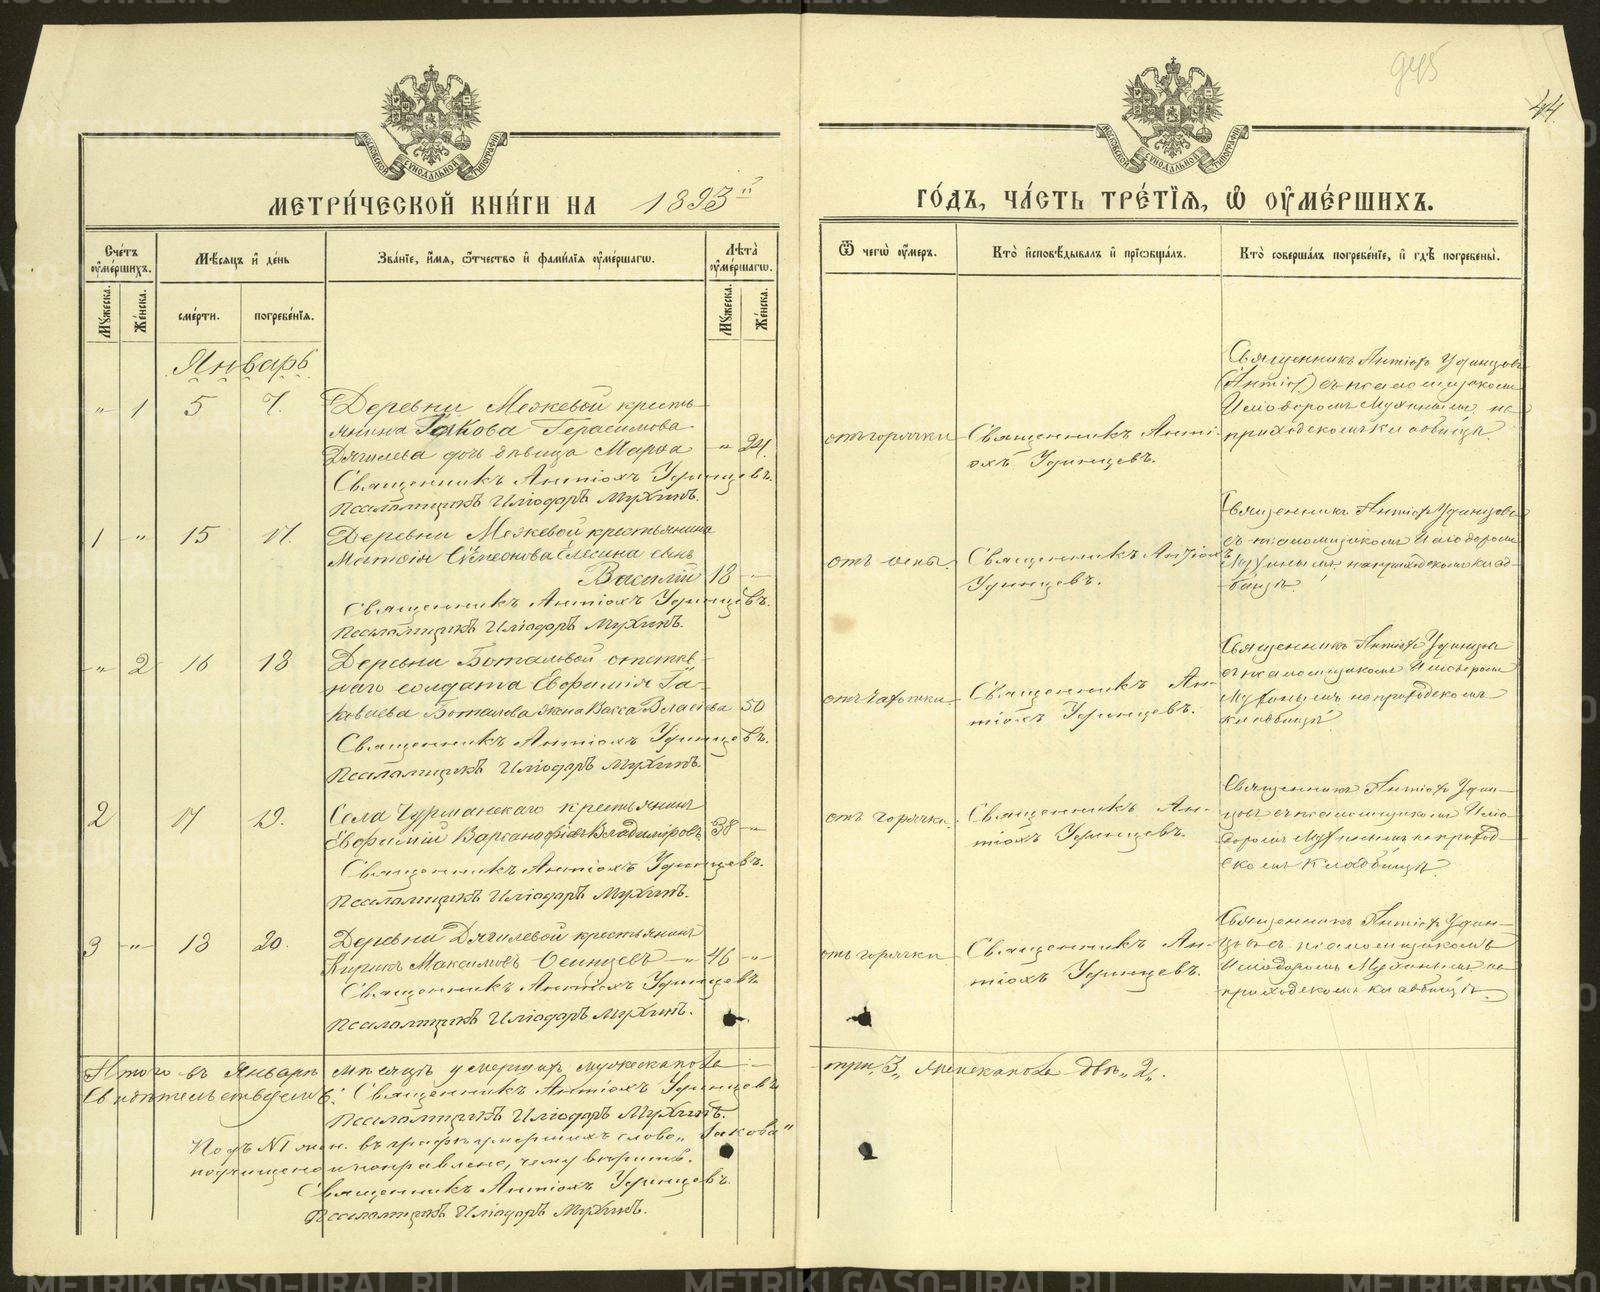 945
44
МЕТРИ́ЧЕСКОЙ КНИ́ГИ НА 1893й
ГО́ДЪ, ЧА́СТЬ ТРЕ́ТІѦ, Ѡ҆ ОУ҆МЕ́РШИХЪ.
МОСКОВСКОЙ СѴНОДАЛЬНОЙ ТИПОГРАФІИ
МОСКОВСКОЙ СѴНОДАЛЬНОЙ ТИПОГРАФІИ
Сче́тъ оу҆ме́ршихъ.
Мѣ́сѧцъ и҆ де́нь
Зва́нїе, и҆́мѧ, ѻ҆́тчество и҆ фами́лїѧ оу҆ме́ршагѡ.
Лѣта̀ оу҆ме́ршагѡ.
Ѿ чегѡ̀ оу҆́меръ.
Кто̀ и҆сповѣ́дывалъ и҆ прїѻбща́лъ.
Кто̀ соверша́лъ погребе́нїе, и҆ гдѣ̀ погребены̀.
Мꙋ́жеска. Же́нска.
сме́рти. погребе́нїѧ.
Мꙋ́жеска. Же́нска.
Январь
„ 1 5 7. Деревни Межевой кресть-
янина Іакова Герасимова
Дягилева дочь дѣвица Марѳа „ 24.
Священникъ Антіохъ Удинцевъ.
Псаломщикъ Иліодоръ Мухинъ.
отъ горячки
Священникъ Анті-
охъ Удинцевъ.
Священникъ Антіохъ Удинцевъ
(Антіох) съ псаломщикомъ
Иліодоромъ Мухинымъ на
приходскомъ кладбищѣ.
1 „ 15 17. Деревни Межевой крестьянина
Матѳія Сѵмеонова Елесина сынъ
Василій 18 „
Священникъ Антіохъ Удинцевъ.
Псаломщикъ Иліодоръ Мухинъ.
отъ оспы.
Священникъ Антіохъ
Удинцевъ.
Священникъ Антіохъ Удинцевъ
съ псаломщикомъ Иліодоромъ
Мухинымъ на приходскомъ клад-
бищѣ.
„ 2 16 18 Деревни Боталовой отстав-
наго солдата Евфимія Іа-
ковлева Боталова жена Васса Власова 50
Священникъ Антіохъ Удинцевъ.
Псаломщикъ Иліодоръ Мухинъ.
отъ чахотки
Священникъ Ан-
тіохъ Удинцевъ.
Священникъ Антіохъ Удинцевъ
съ псаломщикомъ Иліодоромъ
Мухинымъ на приходскомъ
кладбищѣ
2 17 19. Села Чурманскаго крестьянинъ
Евфимій Варсанофіевъ Владиміровъ 38 „
Священникъ Антіохъ Удинцевъ.
Псаломщикъ Иліодоръ Мухинъ.
отъ горячки.
Священникъ Ан-
тіохъ Удинцевъ.
Священникъ Антіохъ Удин-
цевъ съ псаломщикомъ Иліо-
доромъ Мухинымъ на приход-
скомъ кладбищѣ.
3 „ 18 20. Деревни Дягилевой крестьянинъ
Кирикъ Максимовъ Осинцевъ „ 46 „
Священникъ Антіохъ Удинцевъ
Псаломщикъ Иліодоръ Мухинъ.
отъ горячки
Священникъ Ан-
тіохъ Удинцевъ.
Священникъ Антіохъ Удин-
цевъ съ псаломщикомъ
Иліодоромъ Мухинымъ на
приходскомъ кладбищѣ.
Итого въ Январѣ мѣсяцѣ умершихъ мужескаго пола три „3„ женскаго пола двѣ „2„.
Свидѣтельствуемъ: Священникъ Антіохъ Удинцевъ
Псаломщикъ Иліодоръ Мухинъ.
Подъ №1 жен. въ графѣ умершихъ слово „Іакова"
подчищено и поправлено, чему вѣрить.
Священникъ Антіохъ Удинцевъ.
Псаломщикъ Иліодоръ Мухинъ.
METRIKI.GASO-URAL.RU